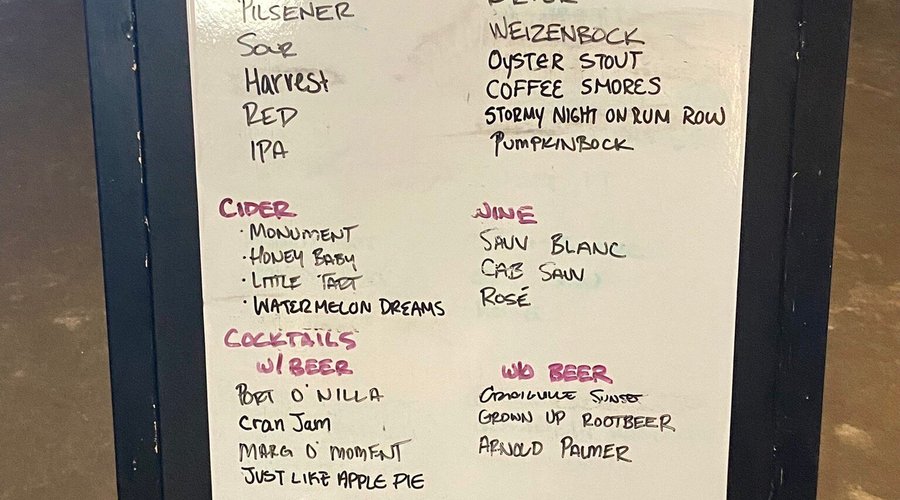 PILSENER
SOUR
Harvest
RED
IPA
WEIZENBOCK
OYSTER STOUT
COFFEE SMORES
STORMY NIGHT ON RUM ROW
PUMPKINBOCK
CIDER
· MONUMENT
· HONEY BABY
· LITTLE TART
· WATERMELON DREAMS
WINE
SAUV BLANC
CAB SAUV
ROSÉ
COCKTAILS
W/ BEER
PORT O'NILLA
Cran Jam
MARG O' MOMENT
JUST LIKE APPLE PIE
W/O BEER
SUNSET
GROWN UP ROOTBEER
ARNOLD PALMER